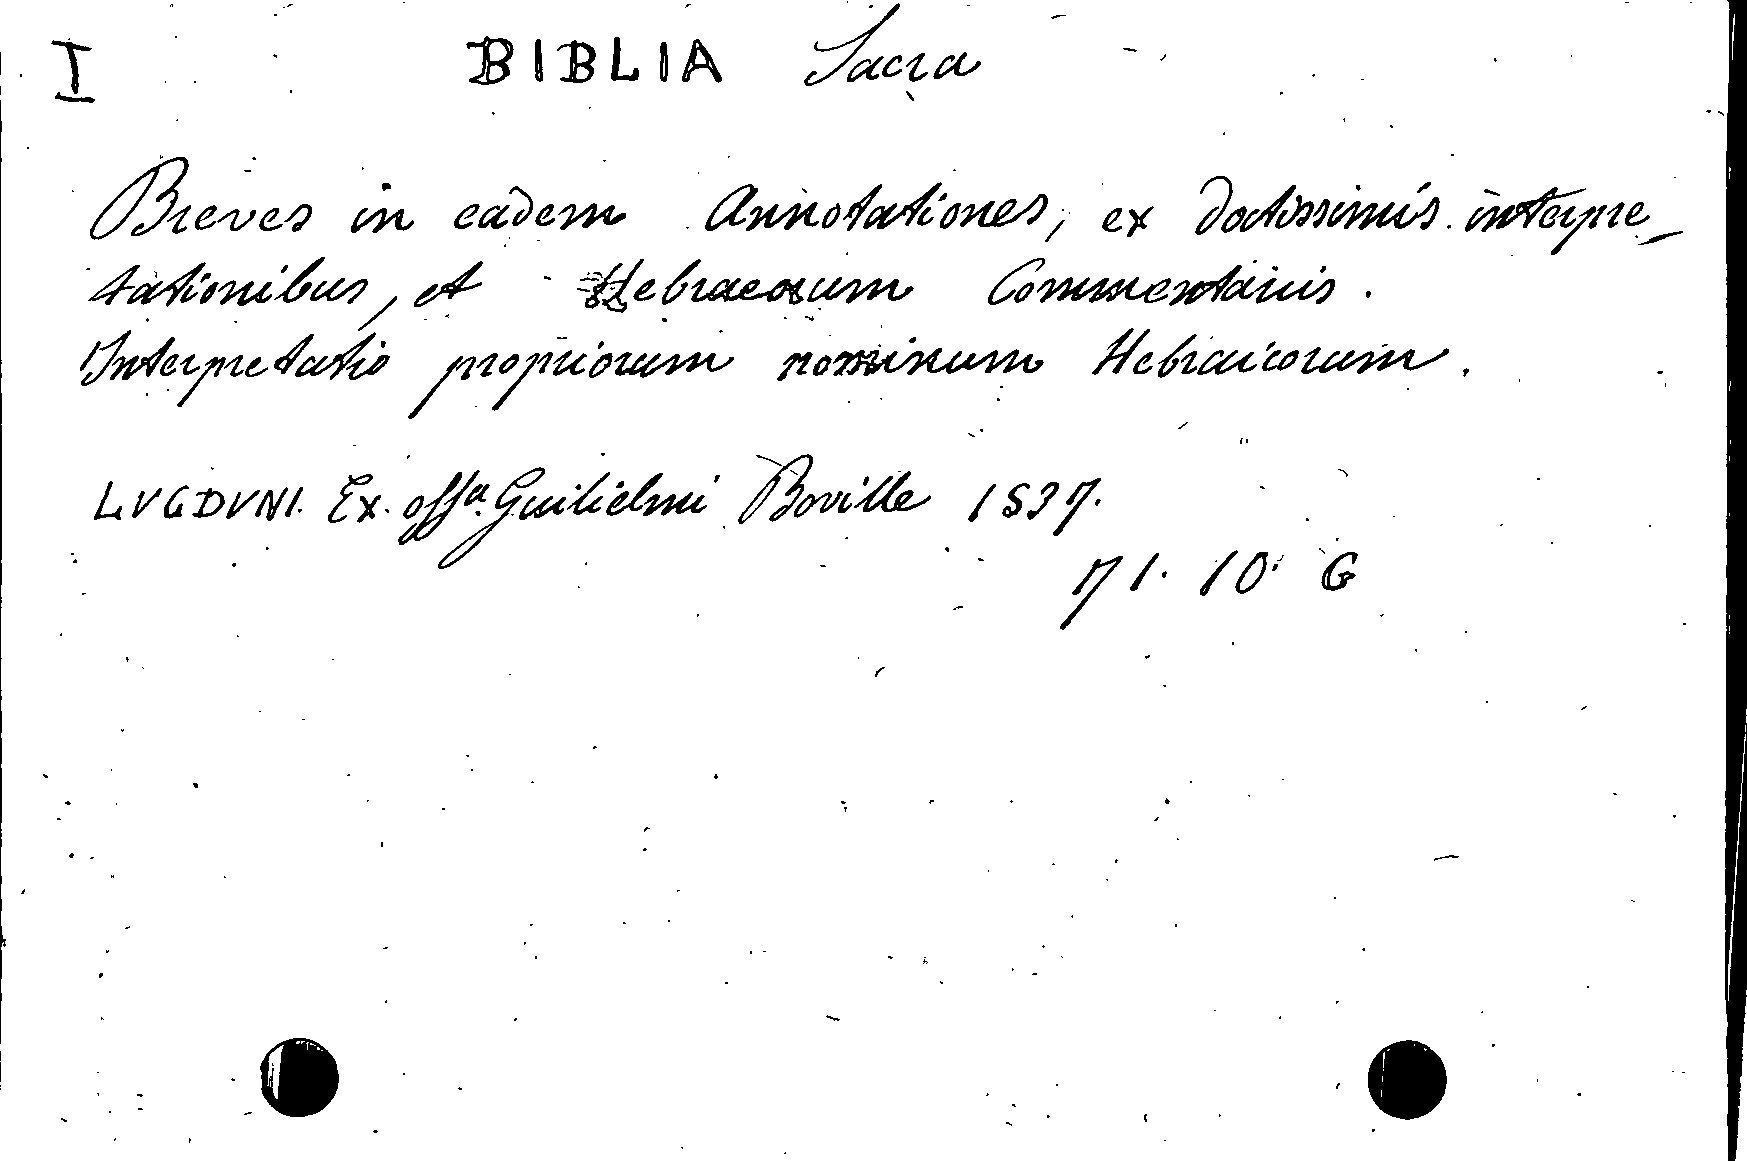 I BIBLIA Sacra
Breves in eadem Annotationes, ex doctissimis interpre_
tationibus, et Hebraeorum Commentariis.
Interpretatio propriorum nominum Hebraicorum.
LVGDVNI. Ex. offa. Guilielmi Boville 1537.
71. 10. G